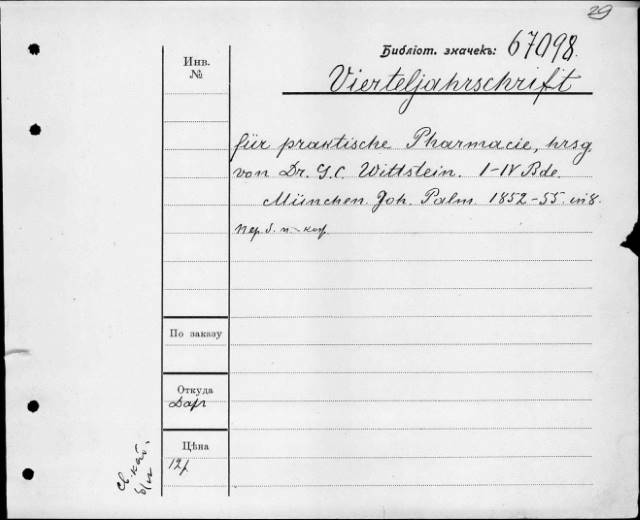 29
Библіот. значекъ: 67098.
Vierteljahrschrift
Инв.
№
für praktische Pharmacie, hrsg.
von Dr. G. C. Wittstein. I-IV Bde.
München. Joh. Palm. 1852-55. in 8.
По заказу
Откуда
Даръ
Цѣна
12р
св. кат.